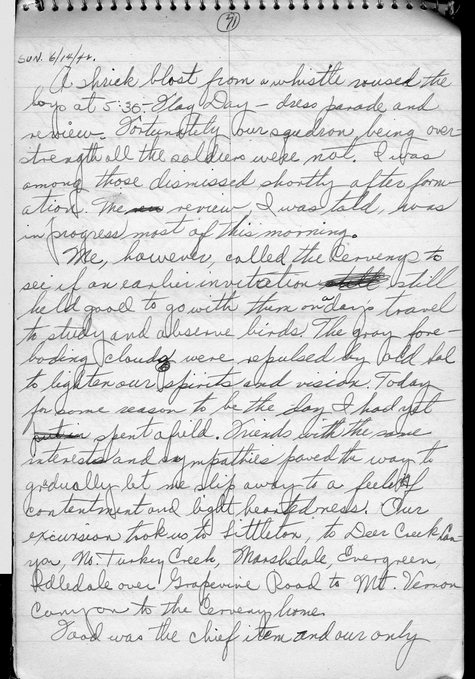 71
SUN. 6/14/42.
A shrick blast from a whistle roused the
boys at 5:30 - Flag Day - dress parade and
review. Fortunately our squadron, being over-
strength all the soldiers were not. I was
among those dismissed shortly after form-
ation. The review, I was told, was
in progress most of this morning.
Me, however, called the Cervenys to
see if an earlier invitation still
held good to go with them on a days travel
to study and observe birds. The gray fore-
boding clouds were repulsed by old Sol
to lighten our spirits and vision. Today
for some reason to be the day I had yet
spent afield. Friends with the same
interests and sympathies paved the way to
gradually let me slip away to a feeling of
contentment and light heartedness. Our
excursion took us to Littleton, to Deer Creek Can-
yon, No. Turkey Creek, Marshdale, Evergreen,
Idledale over Grapevine Road to Mt. Vernon
Canyon to the Cerveny home.
Food was the chief item and our only